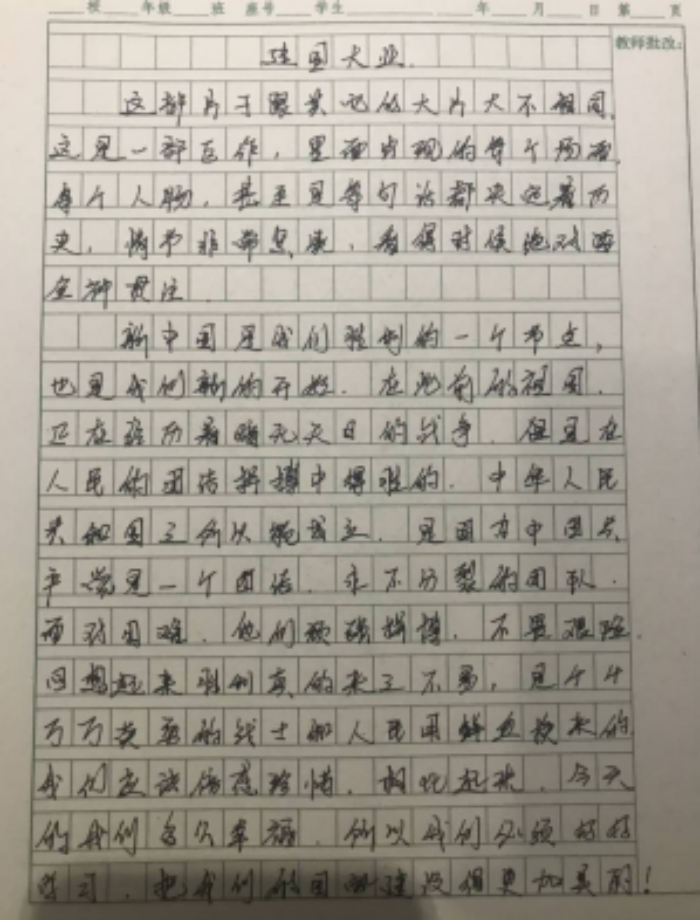 校 年级 班 座号 学生 年 月 日 第 页
教师批改:
建国大业.
这部片子跟其它的大片大不相同,
这是一部巨作,里面出现的每个场面,
每个人物,甚至是每句话都夹起着历
史,情节非常息,看得时候绝对要
全神贯注.
新中国是我们胜利的一个节点,
也是我们新的开始.在此前的祖国.
正在经历着暗无天日的战争.但是在
人民的团结拼搏中得胜的.中华人民
共和国之所以能成立.是因为中国共
产党是一个团结.永不分裂的团队.
面对困难.他们顽强拼搏.不畏艰险.
回想起来胜利真的来之不易,是千千
万万英勇的战士和人民用鲜血换来的
我们应该倍感珍惜.相比起来.今天
的我们多么幸福.所以我们必须好好
学习.把我们的国家建设得更加美丽!